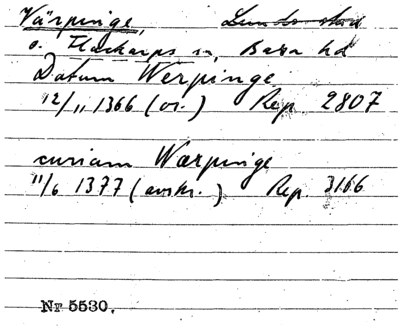 Värpinge, Lunds stad
o. Flackarps sn, Bara hd
Datum Werpinge
12/11 1366 (or.) Rep 2807
curiam Wærpinge
11/6 1377 (avskr.) Rep. 3166
Nr 5530.